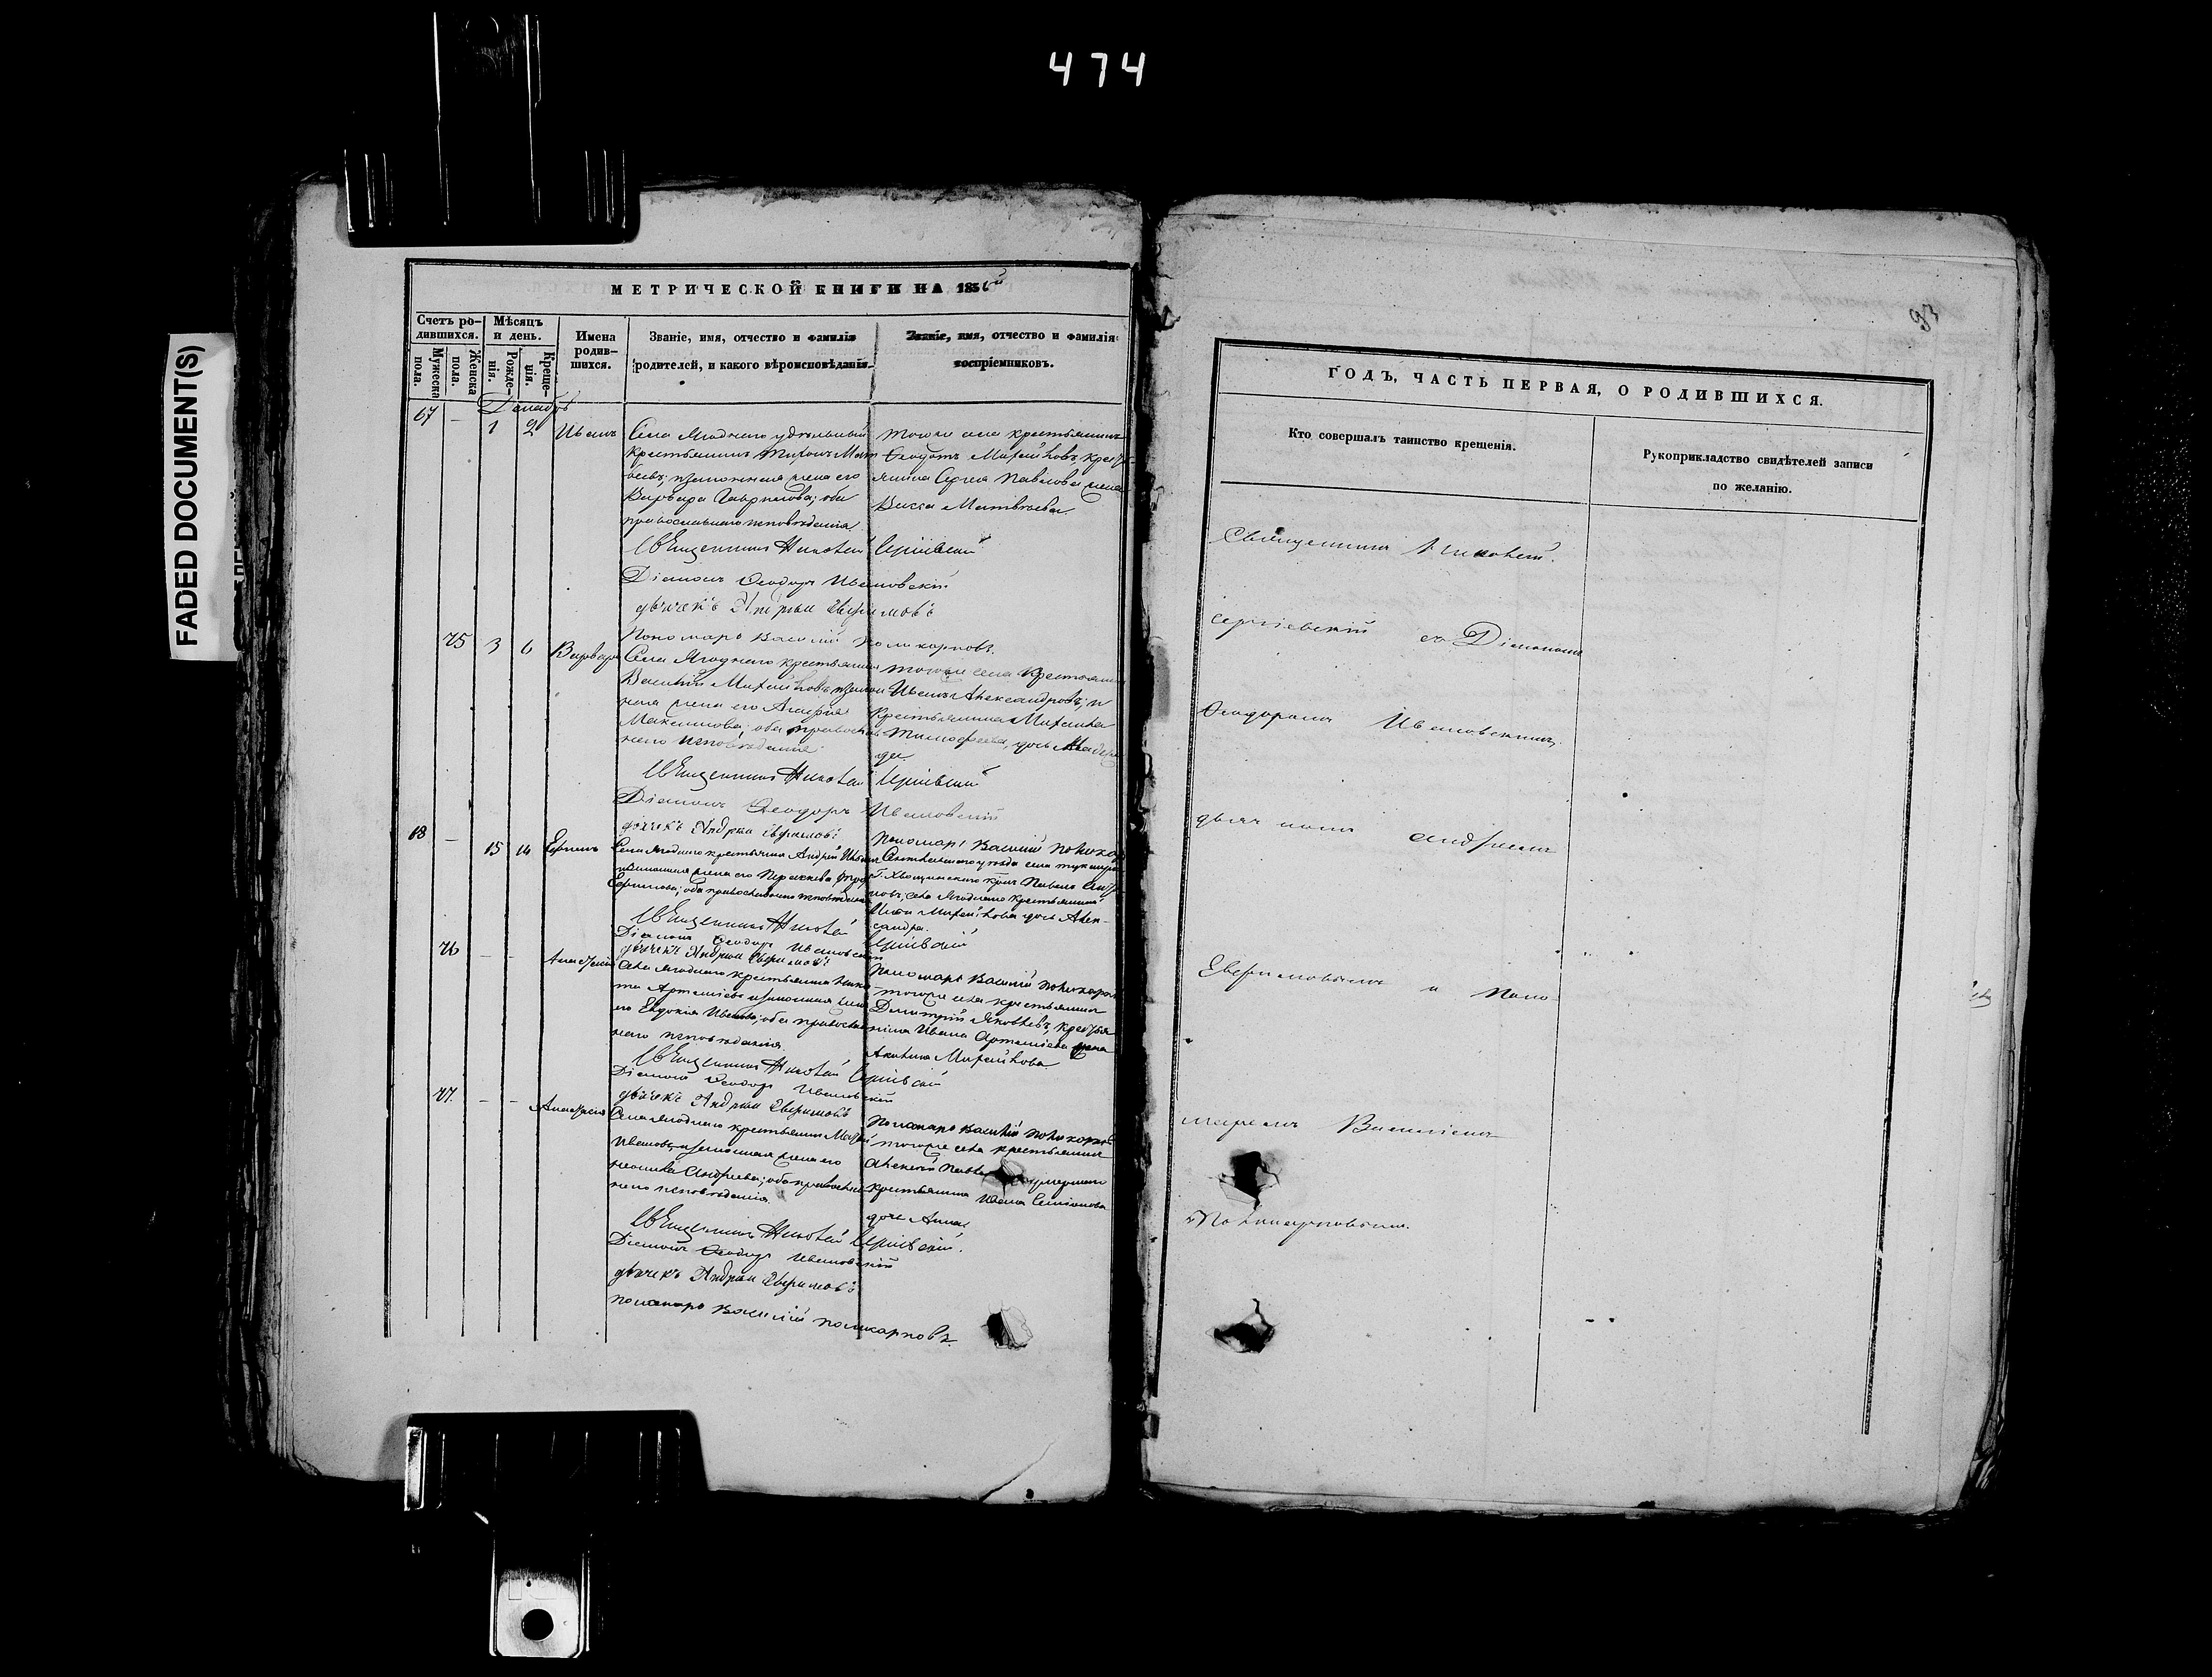 474
FADED DOCUMENT(S)
МЕТРИЧЕСКОЙ КНИГИ НА 1856й
Счетъ ро-
дившихся.
Мужеска
пола.
Женска
пола.
Мѣсяцъ
и день.
Рожде-
нія.
Креще-
нія.
Имена
родив-
шихся.
Званіе, имя, отчество и фамилія
родителей, и какого вѣроисповѣданія.
Званіе, имя, отчество и фамилія
воспріемниковъ.
Декабрь
67 - 1 2 Иванъ
Села Ягоднаго удѣльный
крестьянинъ Тихонъ Мат
веевъ; изаконная жена его
Варвара Гаврилова; оба
православнаго исповѣданія
тогоже села крестьянинъ
Ѳеодотъ Михайловъ, кресть-
янина Сергея Павлова жена
Васса Матвѣева.
Священникъ Николай Сергіевскій
Діаконъ Ѳеодоръ Ивановскій
дьячекъ Андрей Евфимовъ
Пономарь Василій Поликарповъ.
75 3 6 Варвара
Села Ягоднаго крестьянинъ
Василій Михайловъ, изакон
ная жена его Агафья
Максимова; оба православ
наго исповѣданія.
тогоже села крестьянинъ
Иванъ Александровъ; и
крестьянина Михаила
Тимофеева, дочь
Священникъ Николай Сергіевскій
Діаконъ Ѳеодоръ Ивановскій
дьячекъ Андрей Евфимовъ
Пономарь Василій Поликарп
68 - 15 16
Села Ягоднаго крестьянинъ Андрей Иванов
изаконная жена его Параскева
оба православнаго исповѣданія
Павелъ
новъ, села Ягоднаго крестьянина
Михайлова дочь Алек-
сандра.
Священникъ Николай Сергіевскій
Діаконъ Ѳеодоръ Ивановскій
дьячекъ Андрей Евфимовъ
Пономарь Василій Поликарпов
76 - - Анастасія
Села Ягоднаго крестьянинъ Ники
та Артеміевъ изаконная жена
его Евдокія Иванова; оба православ
наго исповѣданія.
тогоже села крестьянинъ
Димитрій Яковлевъ, крестья
нина Ивана Артеміева жена
Акилина Михайлова
Священникъ Николай Сергіевскій
Діаконъ Ѳеодоръ Ивановскій
дьячекъ Андрей Евфимовъ
Пономарь Василій Поликарпов
77. - - Анастасія
Села Ягоднаго крестьянинъ
Ивановъ, изаконная жена его
Андреева; оба православ
наго исповѣданія.
тогоже села крестьянинъ
Алексей
крестьянина Ивана Семіонова
дочь Анна
Священникъ Николай Сергіевскій.
Діаконъ Ѳеодоръ Ивановскій
дьячекъ Андрей Евфимовъ
пономарь Василій Поликарповъ.
93
ГОДЪ, ЧАСТЬ ПЕРВАЯ, О РОДИВШИХСЯ.
Кто совершалъ таинство крещенія.
Рукоприкладство свидѣтелей записи
по желанію.
Священникъ Николай
Сергіевскій съ Діакономъ
Ѳеодоромъ Ивановскимъ,
дьячкомъ Андреемъ
Евфимовымъ и поно-
маремъ Василіемъ
Поликарповымъ.